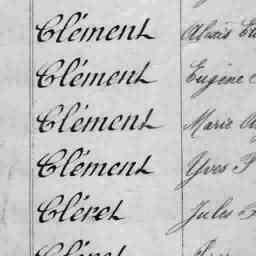 Clément Alexis
Clément Eugène
Clément Marie
Clément Yves
Cléret Jules